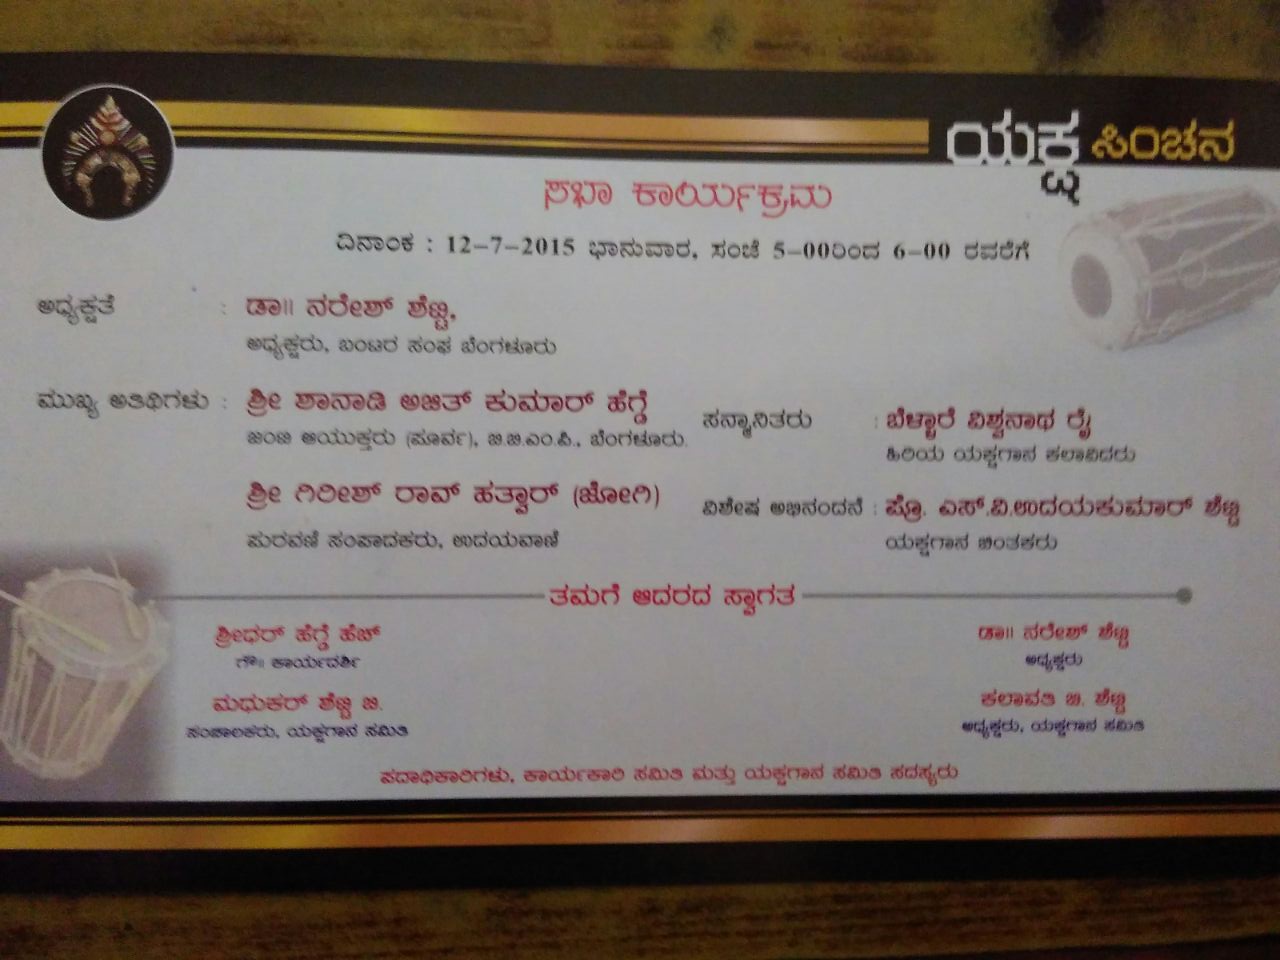 ಯಕ್ಷ ಸಿಂಚನ
ಸಭಾ ಕಾರ್ಯಕ್ರಮ
ದಿನಾಂಕ : 12-7-2015 ಭಾನುವಾರ, ಸಂಜೆ 5-00ರಿಂದ 6-00 ರವರೆಗೆ
ಅಧ್ಯಕ್ಷತೆ : ಡಾ॥ ನರೇಶ್ ಶೆಟ್ಟಿ,
ಅಧ್ಯಕ್ಷರು, ಬಂಟರ ಸಂಘ ಬೆಂಗಳೂರು
ಮುಖ್ಯ ಅತಿಥಿಗಳು : ಶ್ರೀ ಶಾನಾಡಿ ಅಜಿತ್ ಕುಮಾರ್ ಹೆಗ್ಡೆ
ಜಂಟಿ ಆಯುಕ್ತರು (ಪೂರ್ವ), ಬಿ.ಬಿ.ಎಂ.ಪಿ., ಬೆಂಗಳೂರು.
ಶ್ರೀ ಗಿರೀಶ್ ರಾವ್ ಹತ್ವಾರ್ (ಜೋಗಿ)
ಪುರವಣಿ ಸಂಪಾದಕರು, ಉದಯವಾಣಿ
ಸನ್ಮಾನಿತರು : ಬೆಳ್ಳಾರೆ ವಿಶ್ವನಾಥ ರೈ
ಹಿರಿಯ ಯಕ್ಷಗಾನ ಕಲಾವಿದರು
ವಿಶೇಷ ಅಭಿನಂದನೆ : ಪ್ರೊ. ಎಸ್.ವಿ.ಉದಯಕುಮಾರ್ ಶೆಟ್ಟಿ
ಯಕ್ಷಗಾನ ಚಿಂತಕರು
ತಮಗೆ ಆದರದ ಸ್ವಾಗತ
ಶ್ರೀಧರ್ ಹೆಗ್ಡೆ ಹೆಚ್
ಗೌ॥ ಕಾರ್ಯದರ್ಶಿ
ಮಧುಕರ್ ಶೆಟ್ಟಿ ಜಿ.
ಸಂಚಾಲಕರು, ಯಕ್ಷಗಾನ ಸಮಿತಿ
ಡಾ॥ ನರೇಶ್ ಶೆಟ್ಟಿ
ಅಧ್ಯಕ್ಷರು
ಕಲಾವತಿ ಬಿ. ಶೆಟ್ಟಿ
ಅಧ್ಯಕ್ಷರು, ಯಕ್ಷಗಾನ ಸಮಿತಿ
ಪದಾಧಿಕಾರಿಗಳು, ಕಾರ್ಯಕಾರಿ ಸಮಿತಿ ಮತ್ತು ಯಕ್ಷಗಾನ ಸಮಿತಿ ಸದಸ್ಯರು